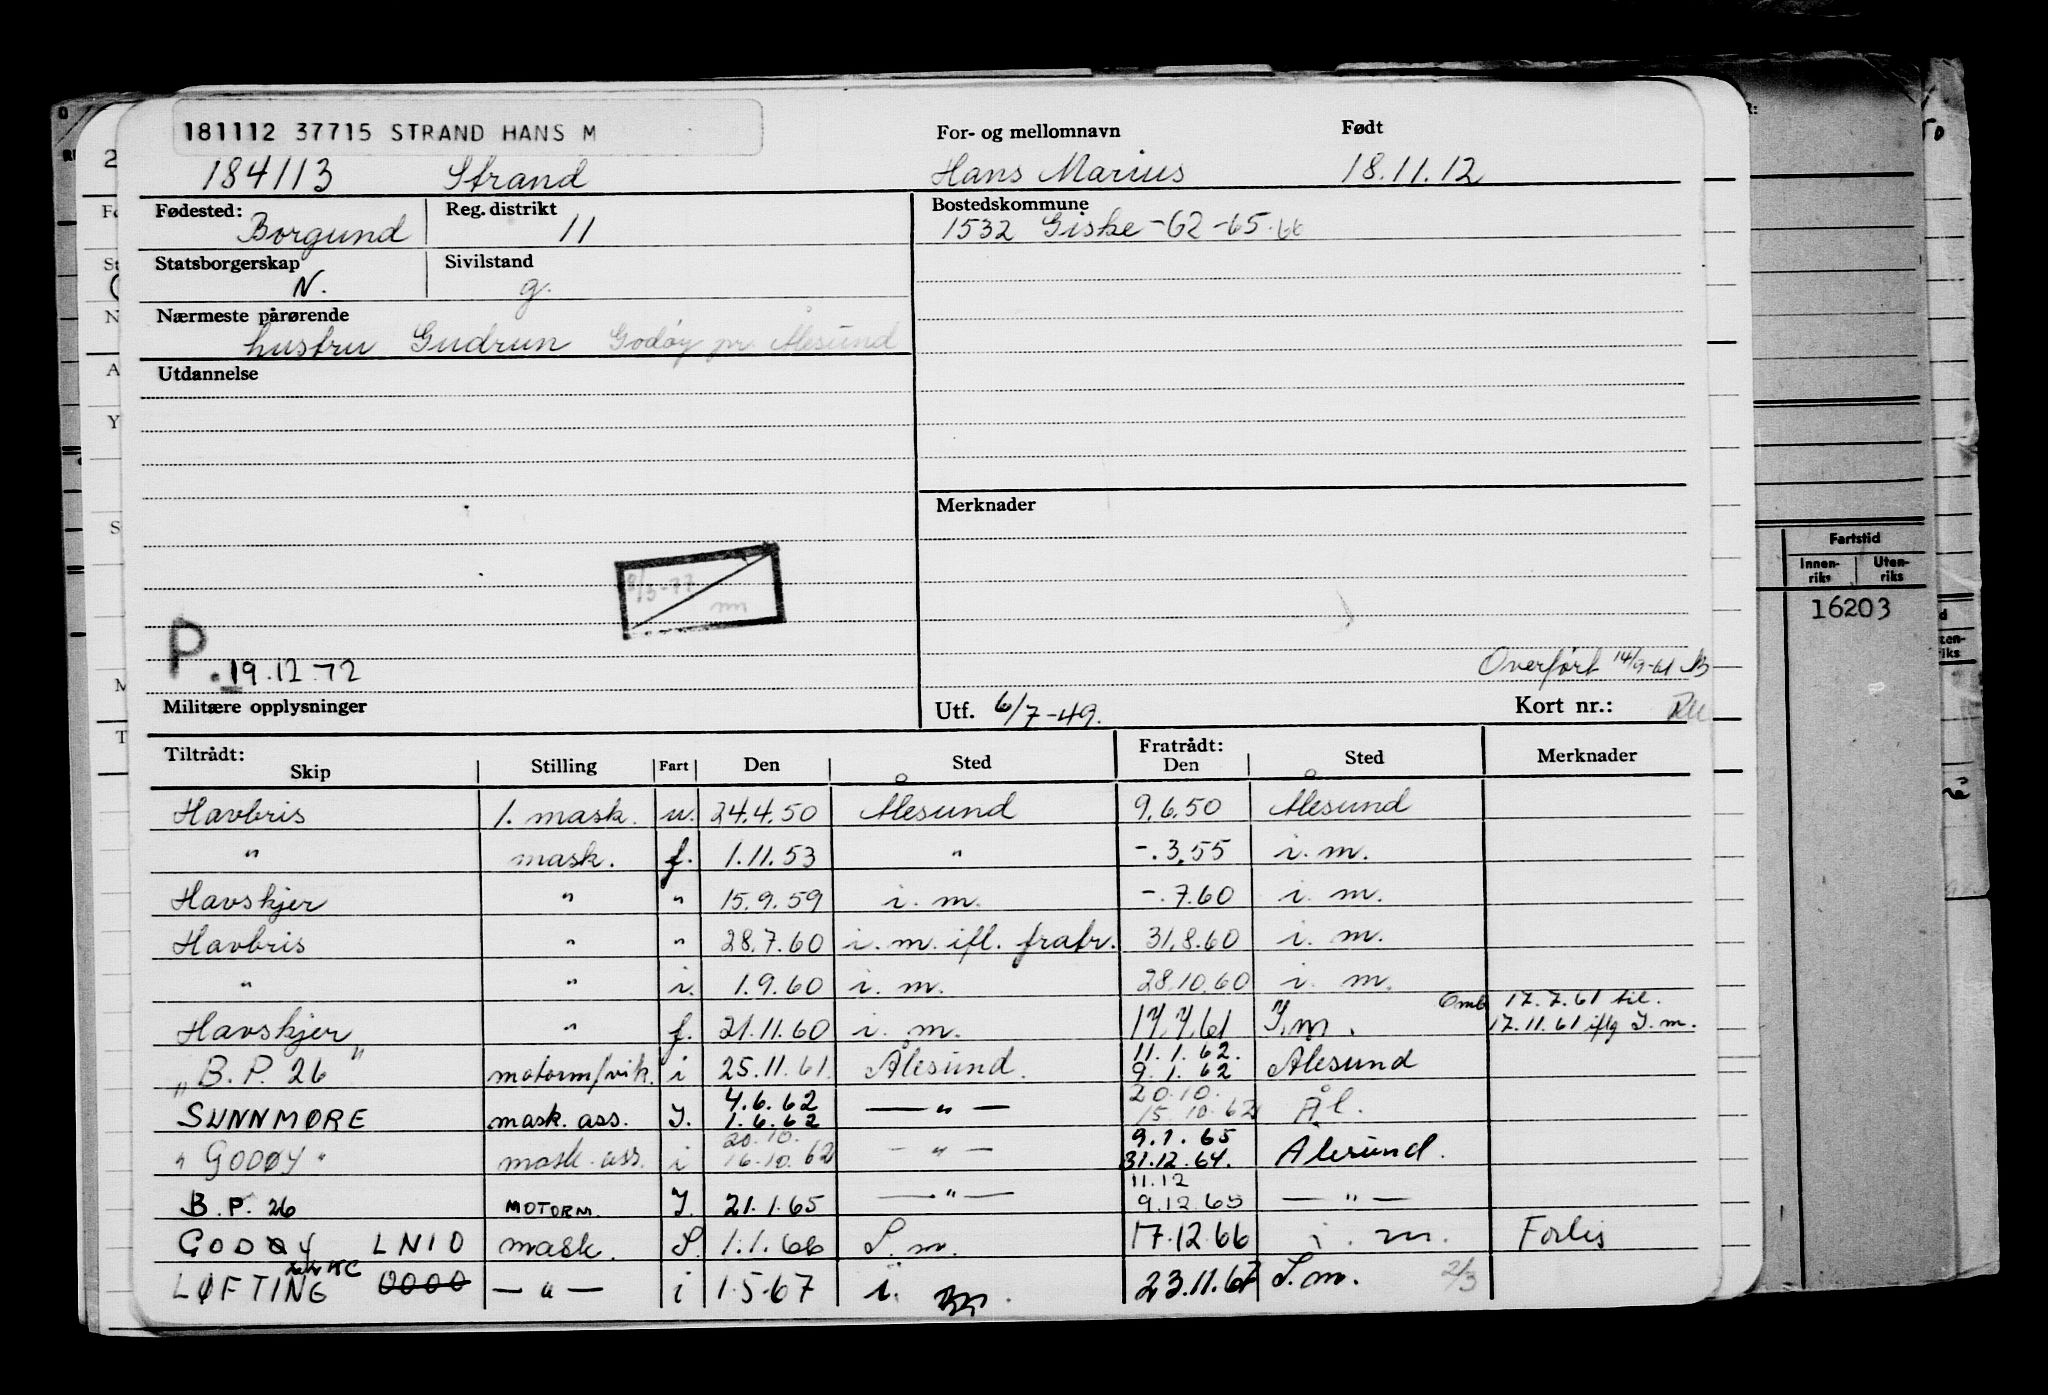 181112 37715 STRAND HANS M
For- og mellomnavn Født
184113 Strand Hans Marius 18.11.12
Fødested: Borgund Reg. distrikt 11
Bostedskommune
1532 Giske -62 -65.66
Statsborgerskap N. Sivilstand g.
Nærmeste pårørende
hustru Gudrun Godøy pr. Ålesund
Utdannelse
Merknader
8/3-77
P. 19.12.72
Overført 14/9-61
Militære opplysninger
Utf. 6/7-49. Kort nr.:
Tiltrådt: Skip Stilling Fart Den Sted Fratrådt: Den Sted Merknader
Havbris 1. mask. u. 24.4.50 Ålesund 9.6.50 Ålesund
" mask. f. 1.11.53 " -.3.55 i. m.
Havskjer " " 15.9.59 i. m. -.7.60 i. m.
Havbris " " 28.7.60 i. m. ifl. fratr. 31.8.60 i. m.
" " i. 1.9.60 i. m. 28.10.60 i. m.
Omb 17.7.61 til.
Havskjer " f. 21.11.60 i. m. 17.7.61 I.m. 17.11.61 iflg I.m.
11.1.62.
"B.P. 26" motorm/vik. i 25.11.61. Ålesund. 9.1.62 Ålesund
4.6.62 20.10.
SUNNMØRE mask. ass. I. 1.6.62 — " — 15.10.62 Ål.
20.10. 9.1.65
"GODØY" mask. ass. i 16.10.62 — " — 31.12.64. Ålesund.
11.12
B.P. 26 MOTORM. I. 21.1.65 — " — 9.12.65 — " —
GODØY LNIO mask. S. 1.1.66 S. m. 17.12.66 i. m. Forlis
LØFTING OOOO — " — i 1.5.67 i. m. 23.11.67 S.m. 2/3
Fartstid
Innen-riks Uten-riks
16203